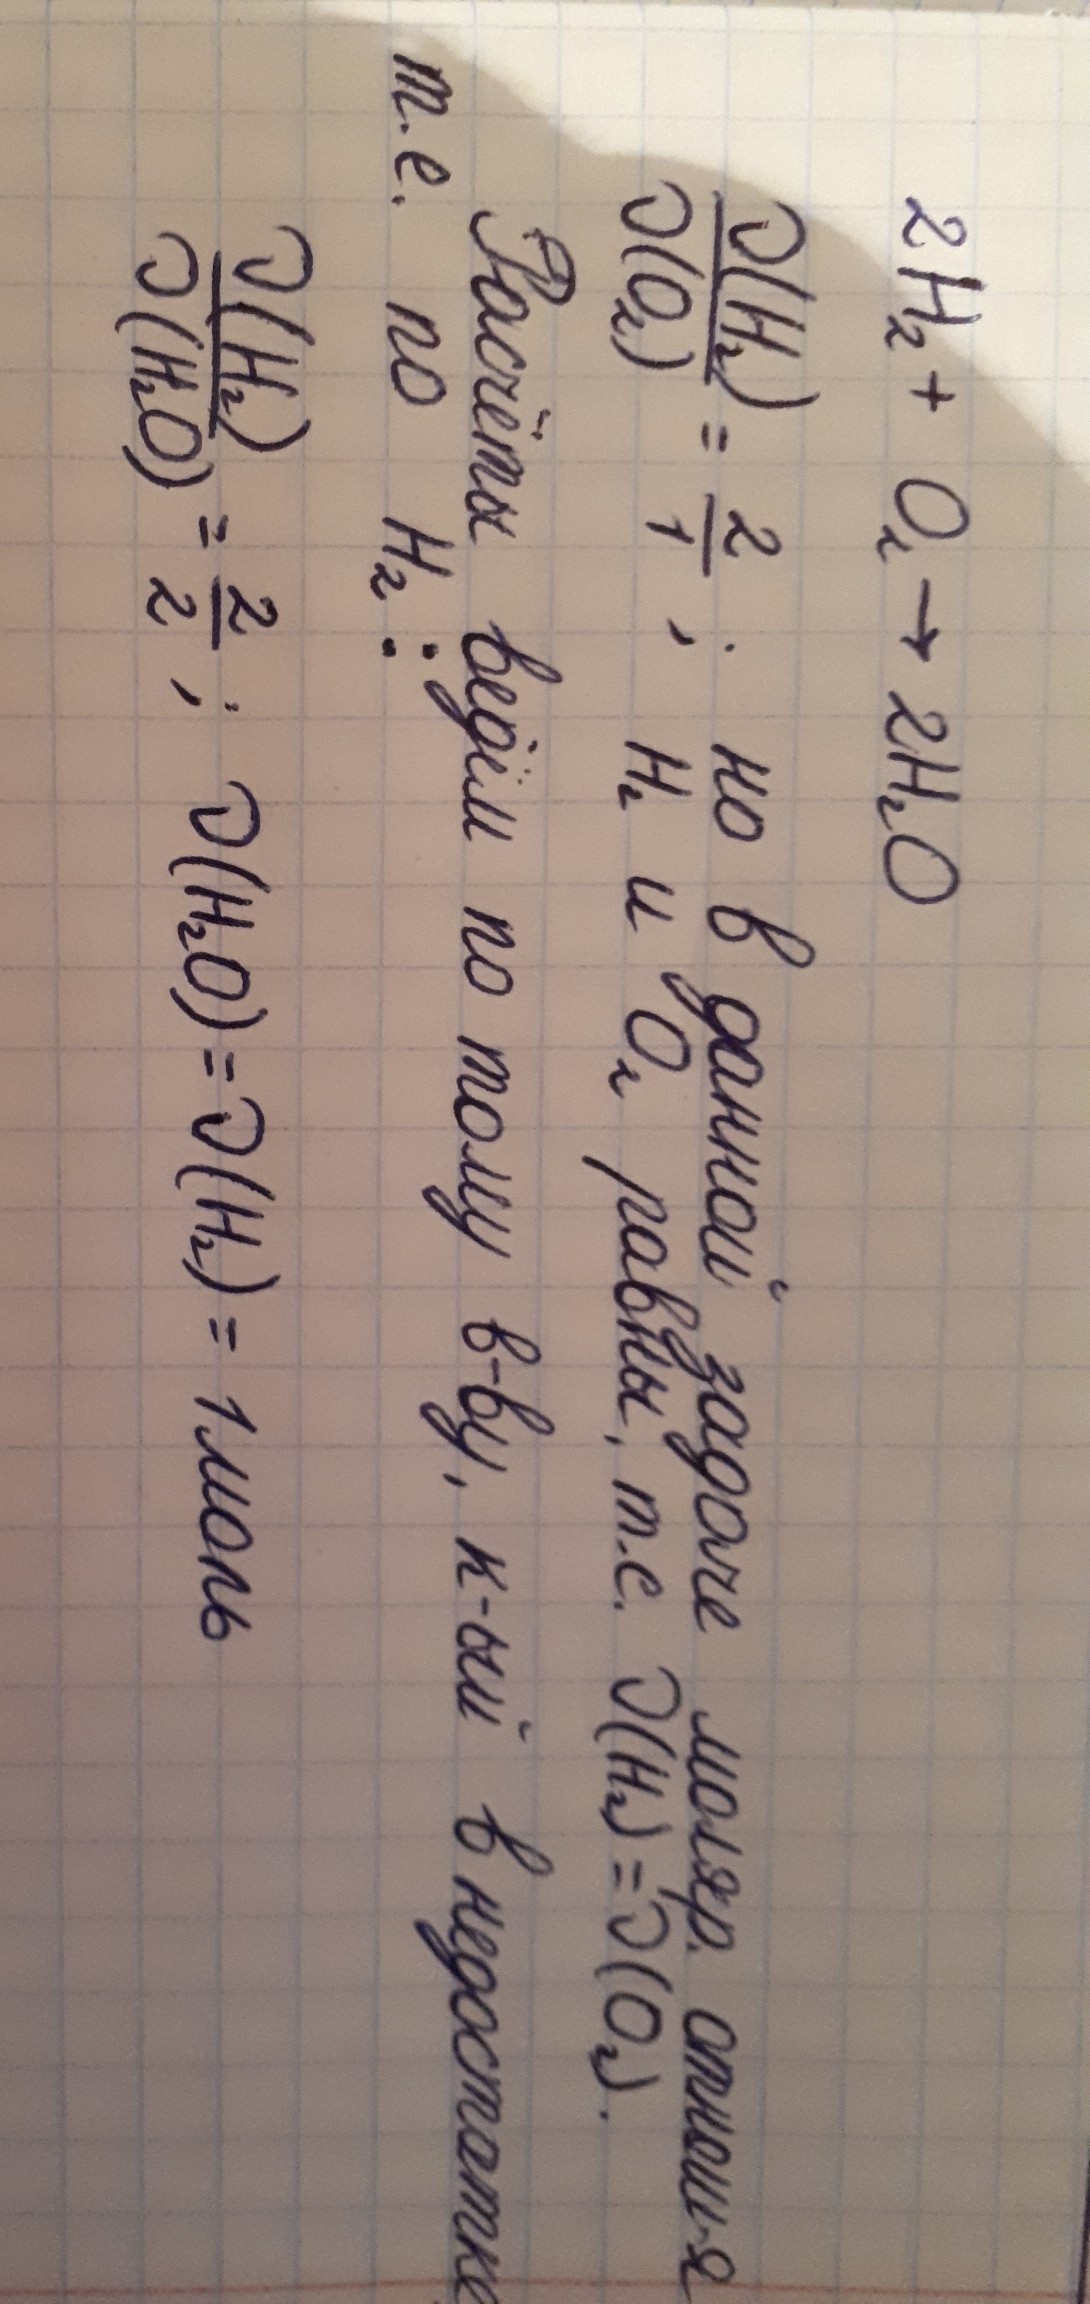 2H₂ + O₂ → 2H₂O
ϑ(H₂)/ϑ(O₂) = 2/1 ; но в данной задаче моляр. отнош-я
H₂ и O₂ равны, т.е. ϑ(H₂) = ϑ(O₂).
Расчёты ведём по тому в-ву, к-ый в недостатке,
т.е. по H₂:
ϑ(H₂)/ϑ(H₂O) = 2/2 ; ϑ(H₂O) = ϑ(H₂) = 1 моль